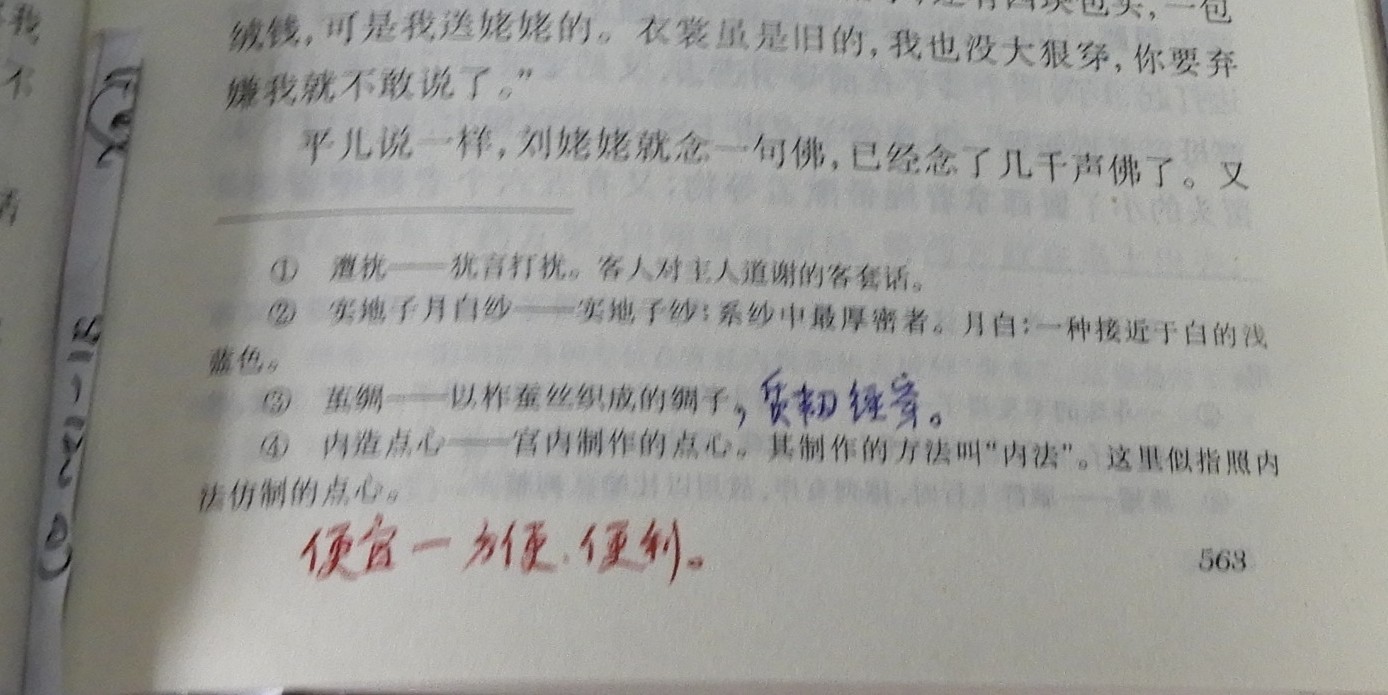 还有四块包头,一包
绒钱,可是我送姥姥的。衣裳虽是旧的,我也没大狠穿,你要弃
嫌我就不敢说了。”
平儿说一样,刘姥姥就念一句佛,已经念了几千声佛了。又
① 遭扰——犹言打扰。客人对主人道谢的客套话。
② 实地子月白纱——实地子纱:系纱中最厚密者。月白:一种接近于白的浅
蓝色。
③ 茧绸——以柞蚕丝织成的绸子,质韧经穿。
④ 内造点心——宫内制作的点心。其制作的方法叫“内法”。这里似指照内
法仿制的点心。
便宜一方便、便利。
563